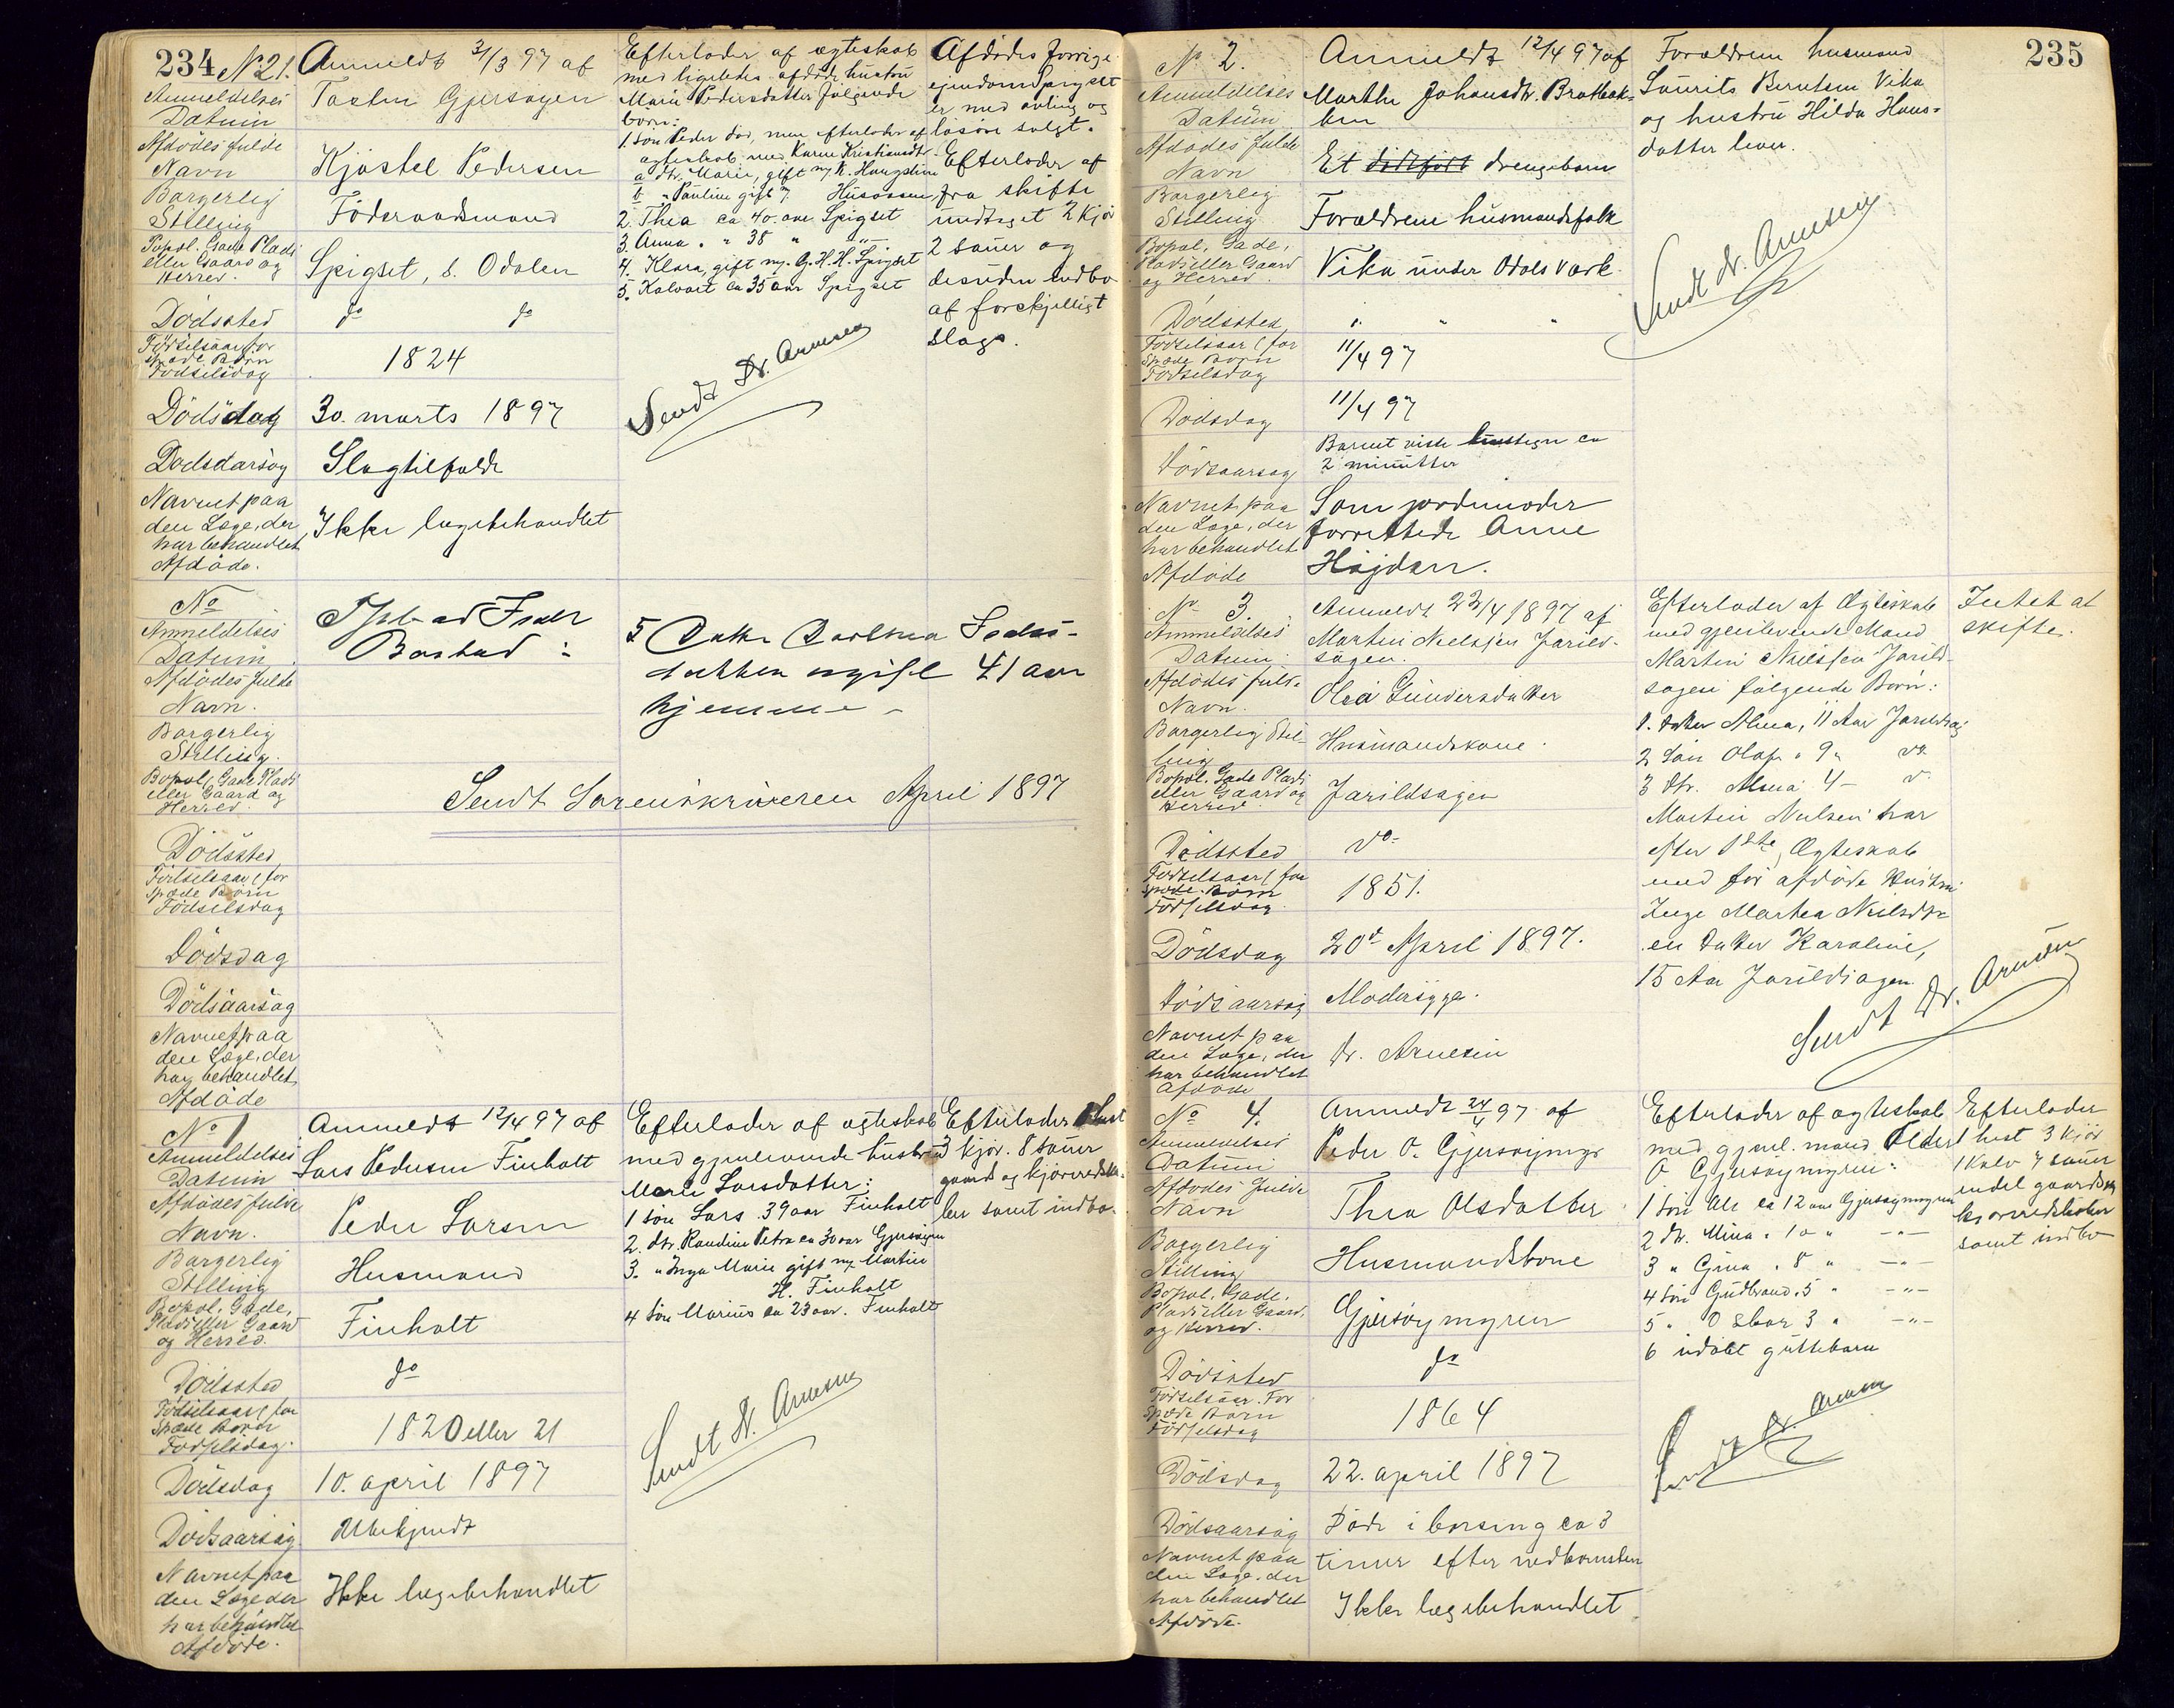 234 No 21.
Anmeldelses
Datum
Afdödes fulde
Navn
Borgerlig
Stilling
Bopæl. Gade Plads
eller Gaard og
Herred.
Dödssted
Födselsaar for
spæde Börn
Födselsdag
Dödsdag
Dödsaarsag
Navnet paa
den Læge, der
har behandlet
Afdöde.
Anmeldt 31/3 97 af
Gjersøyen
Kjøstel Pedersen
Föderaadsmand
Spigset, s. Odalen
do do
1824
30. marts 1897
Slagtilfælde
Ikke lægebehandlet
Efterlader af ægteskab
med ligeledes afdøde hustru
Marie Pedersdatter følgende
børn:
1. søn Peder død, men efterlader af
ægteskab med Karen Kristiansdtr
a dtr. Marie, gift m/ K. Haugstun
b " Pauline gift m/ Husaasen
2. Thea ca 40. aar Spigset
3. Anna " " 38 " "
4. Klara, gift m. G. H. H. Spigset
5. Kalvart ca 35 aar Spigset
Sendt Dr. Arnesen
Afdødes forrige
eiendom Spigset
er med avling og
løsøre solgt.
Efterlader af
fra skifte
undtaget 2 kjør
2 sauer og
desuden indbo
af forskjelligt
slags.
No
Anmeldelses
Datum
Afdödes fulde
Navn.
Borgerlig
Stilling.
Bopæl, Gade Plads
eller Gaard og
Herred.
Dödssted
Födselsaar (for
spæde Börn
Födselsdag
Dödsdag
Dödsaarsag
Navnet paa
den Læge, der
har behandlet
Afdöde
Baastad :
5 Datter
datter ugift 41 aar
hjemme -
Sendt Sorenskriveren April 1897
No 1
Anmeldelses
Datum
Afdödes fulde
Navn.
Borgerlig
Stilling
Bopæl. Gade,
Plads eller Gaard
og Herred.
Dödssted
Födselsaar (for
spæde Börn
Födselsdag.
Dödsdag
Dödsaarsag
Navnet paa
den Læge der
har behandlet
Afdöde.
Anmeldt 12/4 97 af
Lars Pedersen Finholt
Peder Larsen
Husmand
Finholt
do
1820 eller 21
10. april 1897
Ubekjendt
Ikke lægebehandlet
Efterlader af ægteskab
med gjenlevende hustru
Marie Larsdatter:
1 søn Lars 39 aar Finholt
2. dtr. Randine Petra ca 30 aar Gjersøyen
3. " Inga Marie gift m/ Martin
H. Finholt
4 søn Marius ca 23 aar. Finholt
Sendt Dr. Arnesen
Efterlader 1 hest
3 kjør. 8 sauer
gaards og kjøreredska-
ber samt indbo.
235
No 2.
Anmeldelses
Datum
Afdödes fulde
Navn
Borgerlig
Stilling
Bopæl, Gade,
Plads eller Gaard
og Herred
Dödssted
Födselsaar (for
spæde Börn
Födselsdag
Dödsdag
Dödsaarsag
Navnet paa
den Læge, der
har behandlet
Afdöde
Anmeldt 12/4 97 af
Marthe Johansdtr. Bratbak-
ken
Et dødfødt drengebarn
Forældrene husmandsfolk
Vika under Odals værk
" " "
11/4 97
11/4 97
Barnet viste livstegn ca
2 minutter
Som jordmoder
forrettede Anne
Højden.
Forældrene husmand
Laurits Berntsen Vika
og hustru Hilda Hans-
datter lever.
Sendt dr. Arnesen
No 3.
Anmeldelses
Datum
Afdödes fulde
Navn.
Borgerlig Stil-
ling
Bopæl. Gade Plads
eller Gaard og
Herred
Dödssted
Födselsaar (for
spæde Börn
Födselsdag
Dödsdag
Dödsaarsag
Navnet paa
den Læge, der
har behandlet
Afdöde
Anmeldt 23/4 1897 af
Martin Nielsen Jarild-
sagen.
Olea Gundersdatter
Husmandskone.
Jarildsagen
do
1851.
20de April 1897.
Modersyge.
Dr. Arnesen
Efterlader af Ægteskab
med gjenlevende Mand
Martin Nielsen Jarild-
sagen følgende Børn:
1. Datter Alma, 11 Aar Jarildsag
2 Søn Olaf " 9 " do
3 dtr. 4 - do
Martin Nielsen har
efter 1ste Ægteskab
med før afdøde Hustru
Inge Marthea Nielsdtr
en datter Karoline,
15 Aar Jarildsagen
Sendt Dr. Arnesen
Intet at
skifte.
No 4.
Anmeldelses
Datum
Afdödes fulde
Navn
Borgerlig
Stilling
Bopæl. Gade.
Plads eller Gaard,
og Herred.
Dödssted
Födselsaar. For
spæde Børn
Födselsdag
Dödsdag
Dödsaarsag
Navnet paa
den Læge. der
har behandlet
Afdöde.
Anmeldt 24/4 97 af
Peder O. Gjersøymyr
Thea Olsdatter
Husmandskone
Gjersøymyren
do
1864
22. april 1897
Døde i barseng ca 3
timer efter nedkomsten
Ikke lægebehandlet
Efterlader af ægteskab
med gjenl. mand Peder
O Gjersøymyren:
1 søn Ole ca 12 aar Gjersøymyren
2 dtr. Mina " 10 " -"-
3 " Gina " 8 " -"-
4 søn Gudbrand " 5 " -"-
5 " Oskar 3 " -"-
6 udøbt guttebarn
Sendt dr. Arnesen
Efterlader
1 hest 3 kjør
1 kalv 7 sauer
endel gaards og
kjøreredskaber
samt indbo